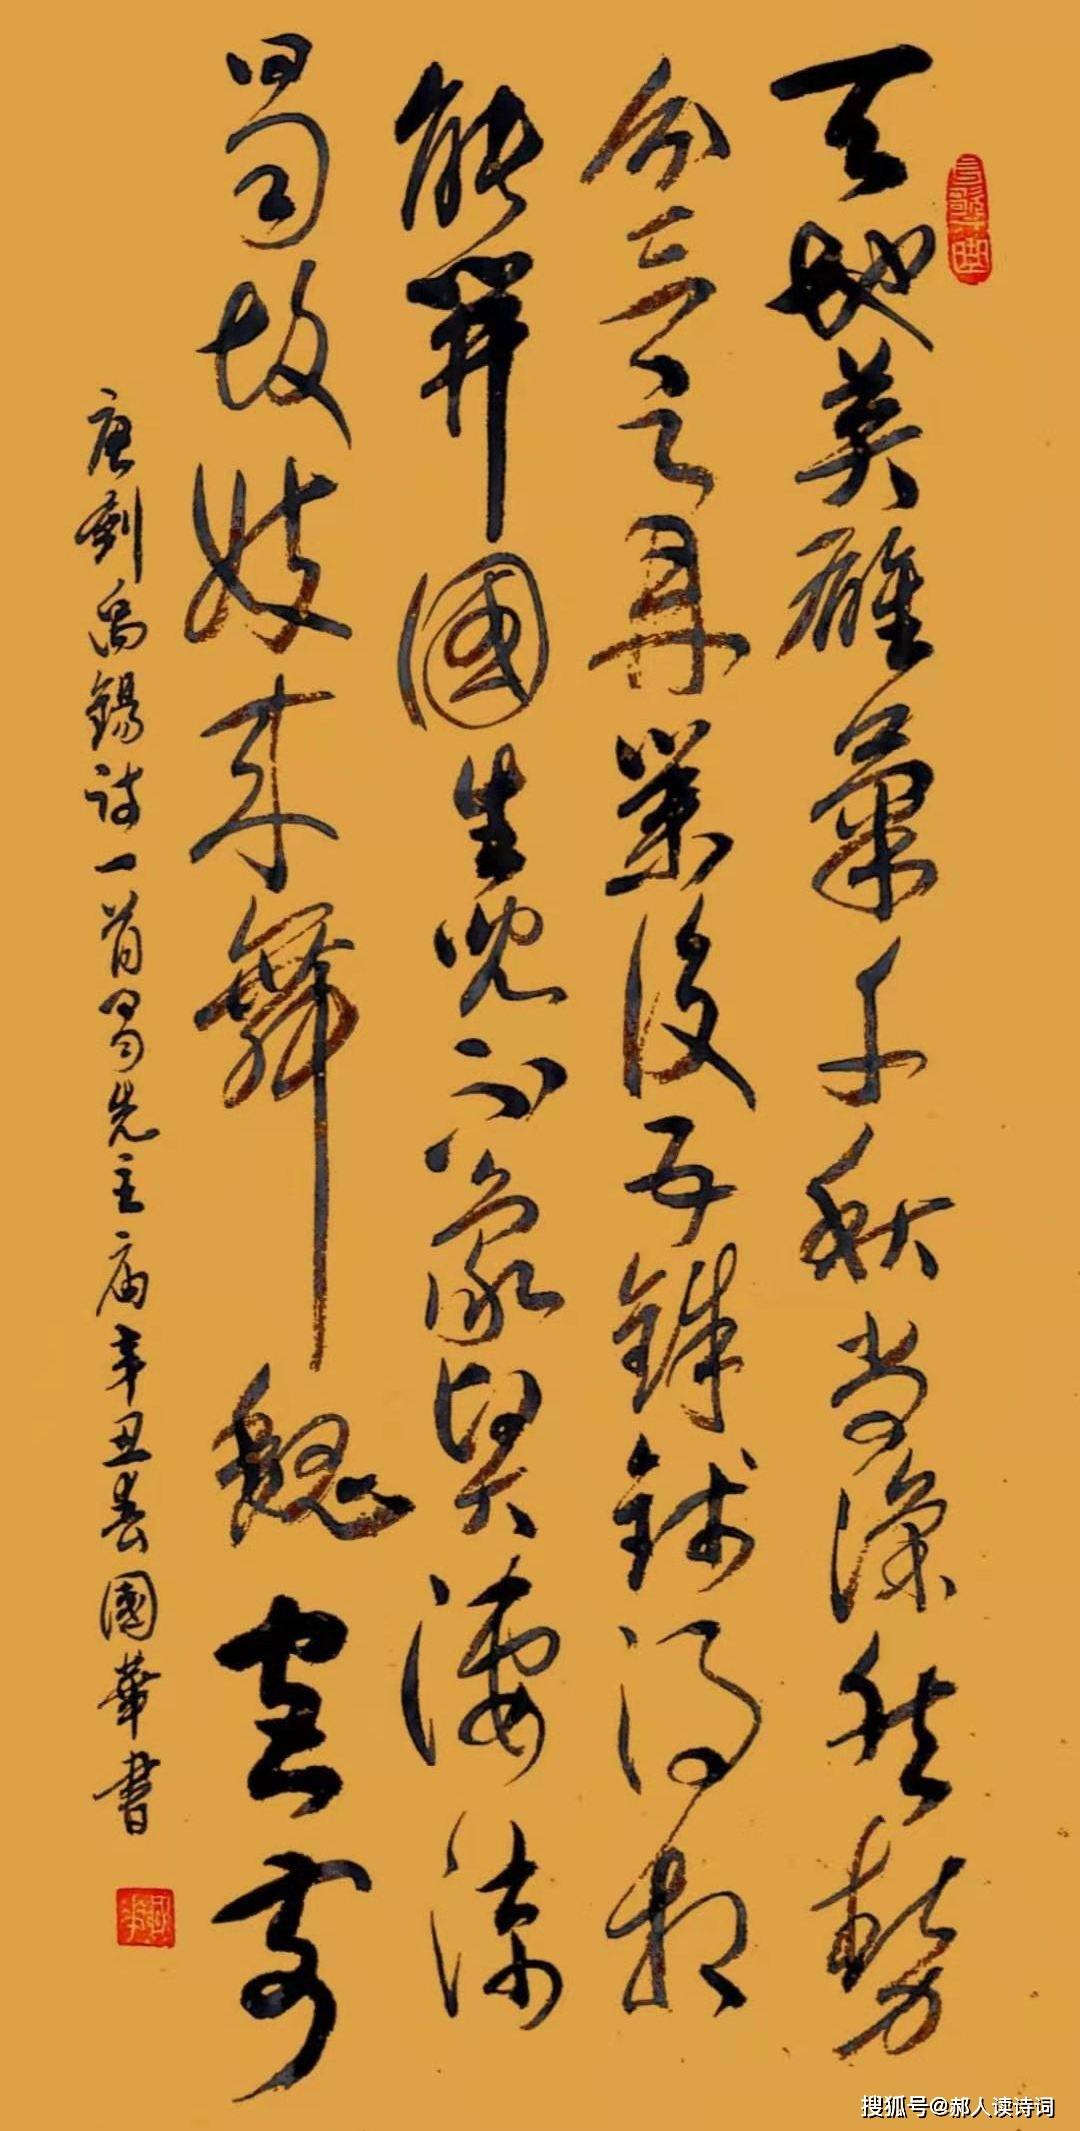 天地英雄氣千秋尚凜然勢
分三足鼎業復五銖錢得相
能開國生兒不象賢淒涼
蜀故妓來舞魏宮前
唐劉禹錫詩一首蜀先主廟辛丑春國華書
搜狐号@郝人读诗词